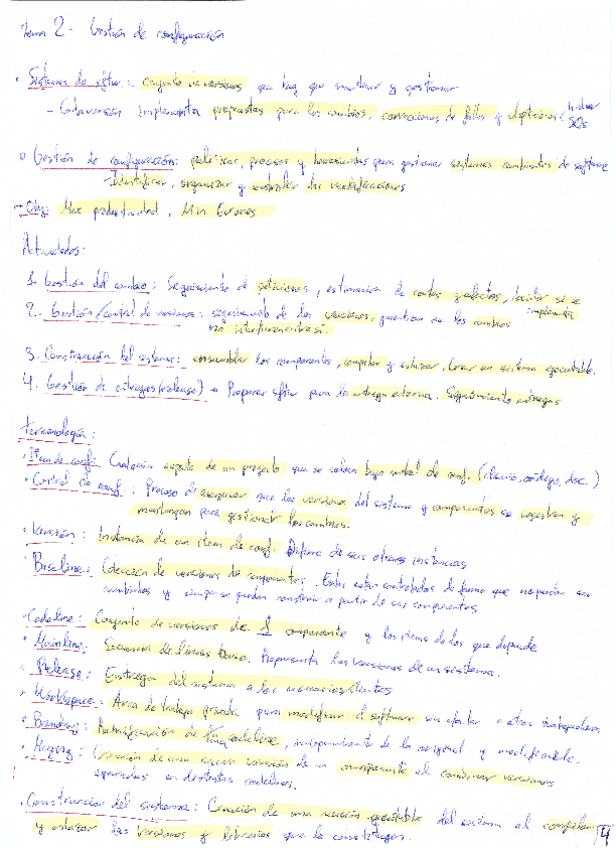 Tema 2 - Gestión de configuración
• Sistemas de sftw: conjunto de versiones que hay que mantener y gestionar
- Cada versión implementa propuestas para los cambios, correcciones de fallos y adaptaciones
• Gestión de configuración: políticas, procesos y herramientas para gestionar sistemas cambiantes de software
- Identificar, organizar y controlar las modificaciones
→ Obj: Max productividad, Min Errores
Actividades:
1. Gestión del cambio: Seguimiento de peticiones, estimación de costes y efectos, decidir si se implementa
2. Gestión/control de versiones: seguimiento de las versiones, garantizar que los cambios
no interfieren entre si.
3. Construcción del sistema: ensamblar los componentes, compilar y enlazar. Crear un sistema ejecutable.
4. Gestión de entregas (release) = Preparar sftw para la entrega externa. Seguimiento entregas
Terminología:
• Item de conf: Cualquier aspecto de un proyecto que se coloca bajo control de conf. (diseño, código, doc.)
• Control de conf.: Proceso de asegurar que las versiones del sistema y componentes se registran y
mantengan para gestionar los cambios.
• Versión: Instancia de un item de conf. Difiere de sus otras instancias
• Baseline: Colección de versiones de componentes. Estas están controladas de forma que no puedan ser
cambiadas y siempre se puedan construir a partir de sus componentes
• Codeline: Conjunto de versiones de 1 componente y los items de los que depende
• Mainline: Secuencia de líneas base. Representa las versiones de un sistema.
• Release: Entrega del sistema a los usuarios/clientes
• Workspace: Area de trabajo privada para modificar el software sin afectar a otros
• Branching: Ramificación de una codeline, independiente de la original y modificable.
• Merging: Creación de una nueva versión de un componente al combinar versiones
separadas en distintas codelines.
• Construcción del sistema: Creación de una versión ejecutable del sistema al compilar
y enlazar las versiones y librerías que lo constituyen.
4